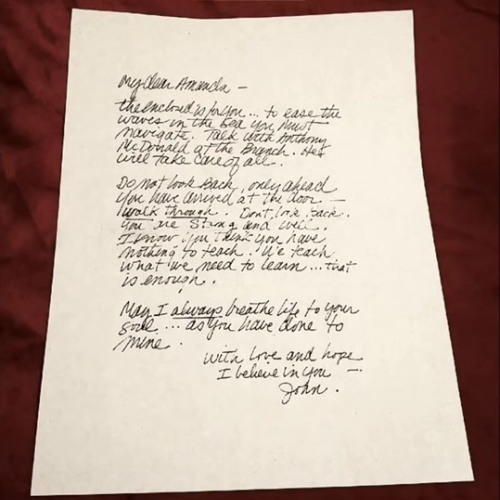 My dear Amanda —
the enclosed is for you... to ease the
waves in the sea you must
navigate. Talk with Anthony
McDonald at the Branch. He
will take care of all.
Do not look back, only ahead
you have arrived at the door —
walk through. Don't look back.
you are strong and well.
I know you think you have
nothing to teach. We teach
what we need to learn... that
is enough.
May I always breathe life to your
soul... as you have done to
mine.
with love and hope
I believe in you —
John.